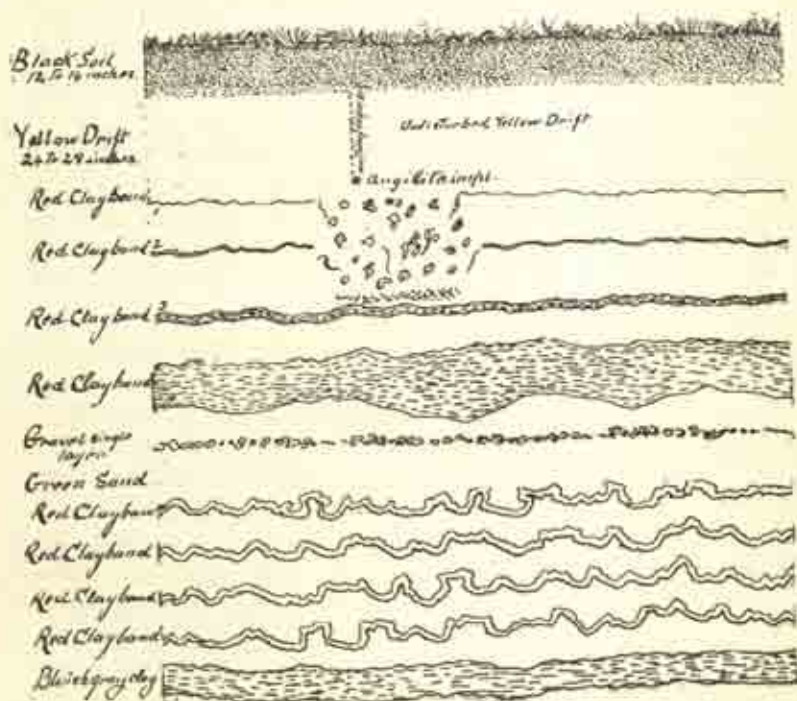 Black Soil
12 to 14 inches
Undisturbed Yellow Drift
Yellow Drift
24 to 28 inches
Red Clayband
Red Clayband 2
Red Clayband 3
Red Clayband
Gravel single
layer
Green Sand
Red Clayband
Red Clayband
Red Clayband
Red Clayband
Bluish gray clay